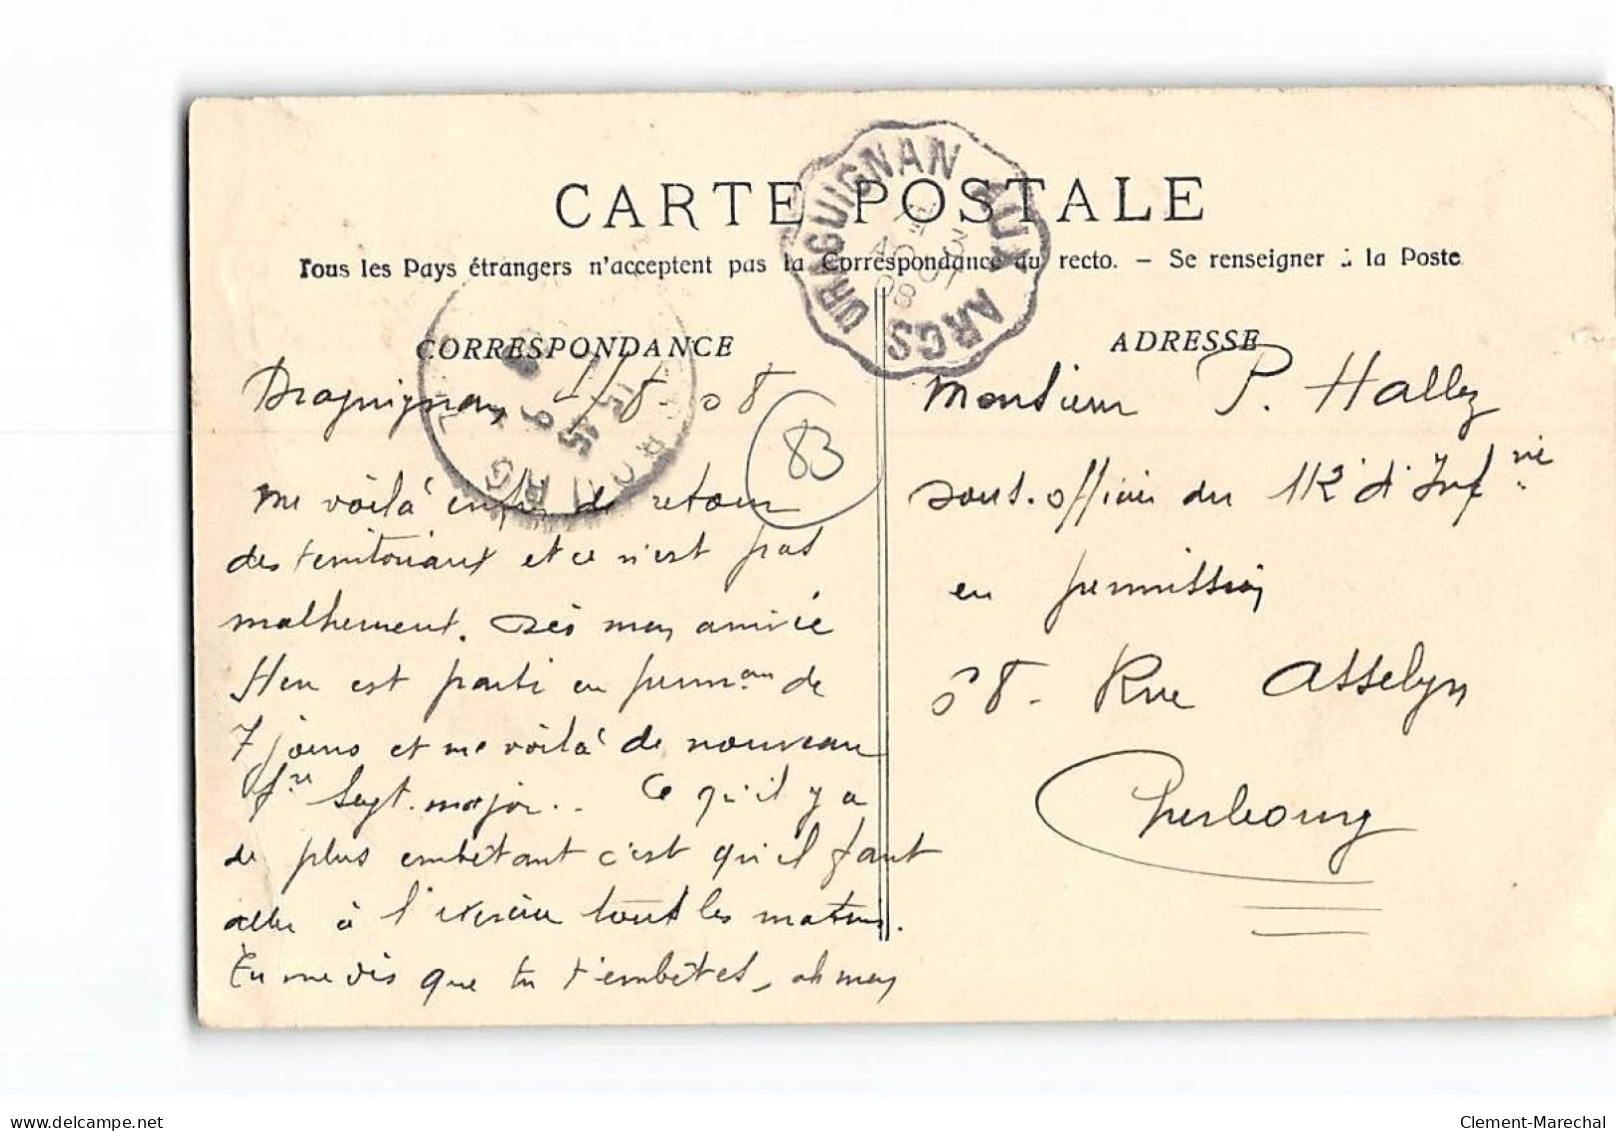 CARTE POSTALE
Tous les Pays étrangers n'acceptent pas la Correspondance au recto. – Se renseigner à la Poste
DRAGUIGNAN AUX ARCS
CORRESPONDANCE
Draguignan 8 - 08
83
me voilà enfin de retour
des territoriaux et ce n'est pas
malheureux. Dès mon arrivée
est parti en permon de
7 jours et me voilà de nouveau
fre Sergt. major.. Ce qu'il y a
de plus embêtant c'est qu'il faut
aller à l'exercice tout les matins.
Tu me dis que tu t'embêtes, ah mon
ADRESSE
Monsieur P. Hallez
sous-officier du 112 d'Infrie
en permission
58 - Rue Asselyn
Cherbourg
delcampe.net
Clement-Marechal